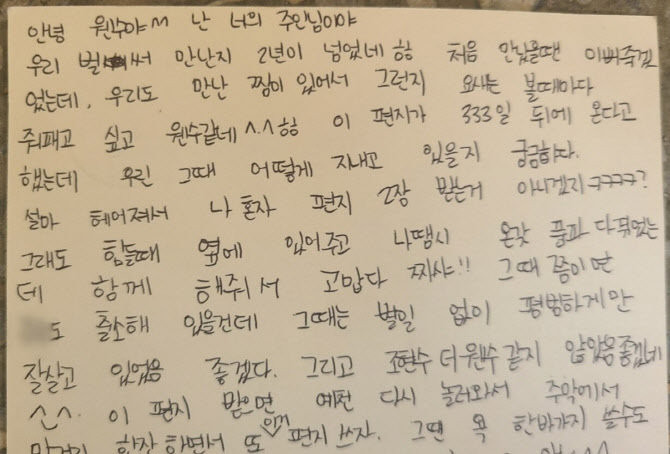 안녕 원수야 ^^ 난 너의 주인님이야
우리 벌써 만난지 2년이 넘었네 ㅎㅎ 처음 만났을땐 이뻐죽겠
었는데, 우리도 만난 찜이 있어서 그런지 요새는 볼때마다
줘패고 싶고 원수같네^^ㅎㅎ 이 편지가 333일 뒤에 온다고
했는데 우린 그때 어떻게 지내고 있을지 궁금하다.
설마 헤어져서 나 혼자 편지 2장 받는거 아니겠지ㅋㅋㅋㅋ?
그래도 힘들때 옆에 있어주고 나땜시 온갖 풍파 다겪었는
데 함께 해줘서 고맙다 짜샤!! 그때 쯤이면
도 출소해 있을건데 그때는 별일 없이 평범하게 만
잘살고 있었음 좋겠다. 그리고 조현수 더 원수 같지 않았음 좋겠네
^^. 이 편지 받으면 예전 다시 놀러와서 주막에서
한잔 하면서 또 편지 쓰자. 그땐 욕 한바가지 쓸수도